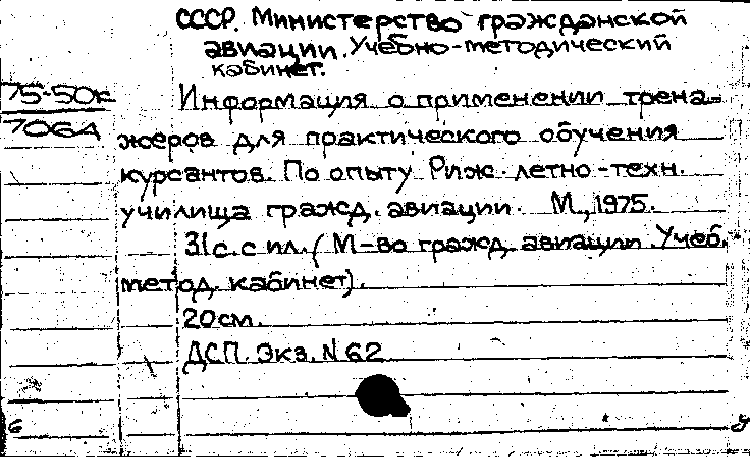 СССР. Министерство гражданской
авиации. Учебно-методический
кабинет.
75-50к
Информация о применении трена-
706А
жеров для практического обучения
курсантов. По опыту Риж. летно-техн.
училища гражд. авиации. М., 1975.
31с. с ил. (М-во гражд. авиации. Учеб.
метод. кабинет).
20см.
ДСП. Экз. N 62